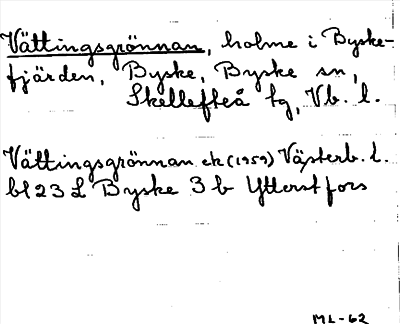 Vättingsgrönnan, holme i Byske-
fjärden, Byske, Byske sn,
Skellefteå tg, Vb. l.
Vättingsgrönnan ek (1959) Västerb. l.
bl 23 L Byske 3 b Ytterstfors
ML-62